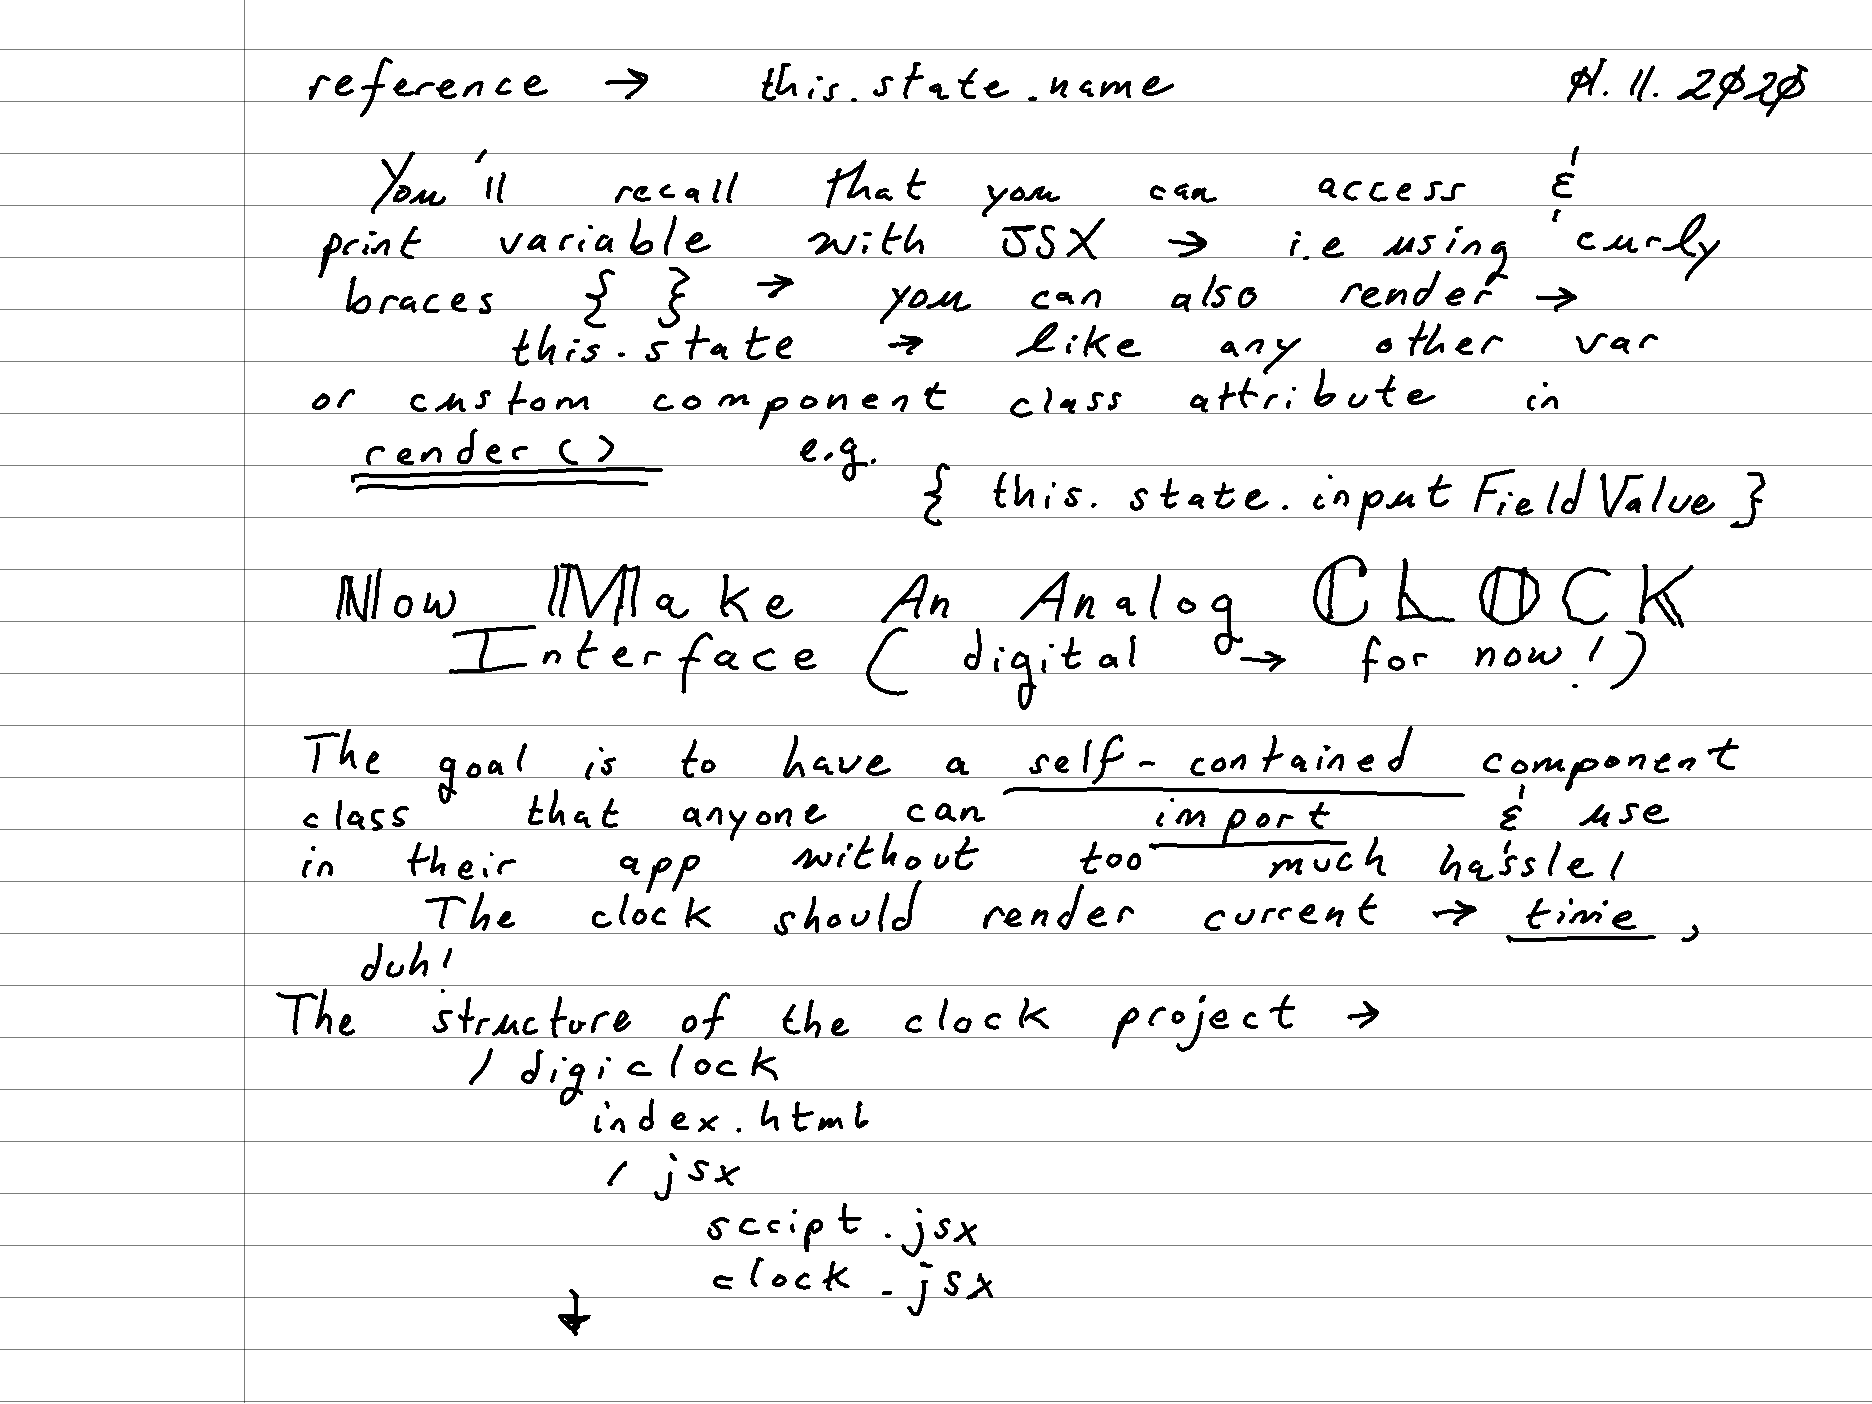 reference → this.state.name 01.11.2020
You'll recall that you can access &
print variable with JSX → i.e using curly
braces { } → you can also render →
this.state → like any other var
or custom component class attribute in
render() e.g.
{ this.state.inputFieldValue }
Now Make An Analog CLOCK
Interface ( digital → for now! )
The goal is to have a self-contained component
class that anyone can import & use
in their app without too much hassle!
The clock should render current → time,
duh!
The structure of the clock project →
/ digiclock
index.html
/ jsx
script.jsx
clock.jsx
↓